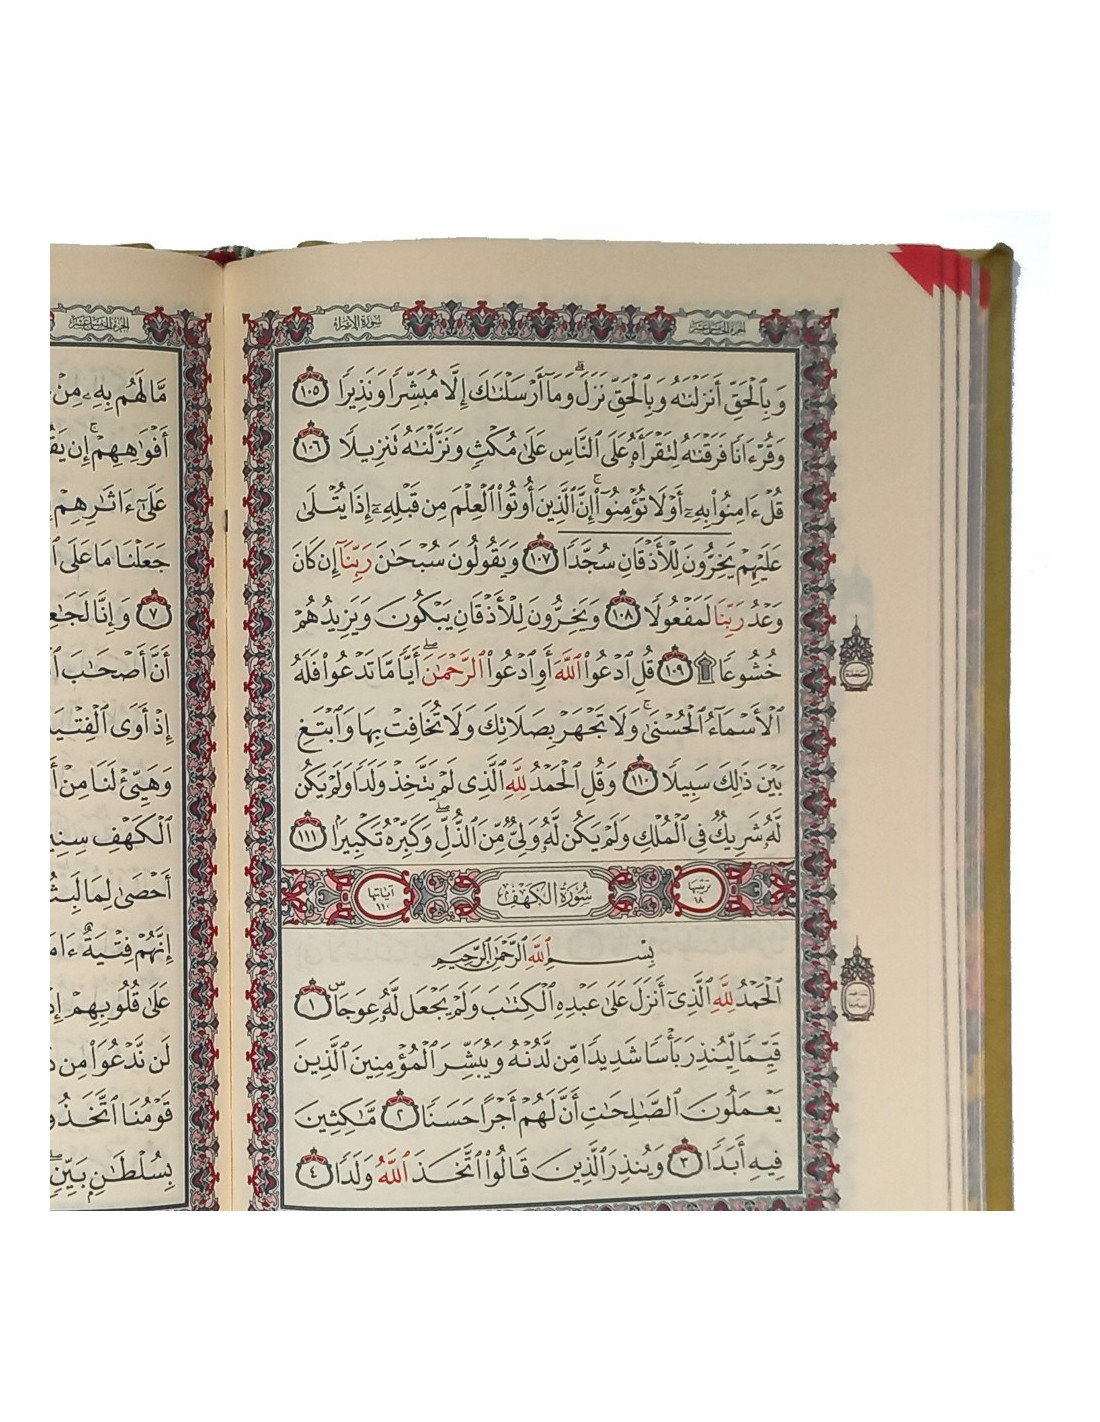 سورة الإسراء
وَبِٱلْحَقِّ أَنزَلْنَٰهُ وَبِٱلْحَقِّ نَزَلَ ۗ وَمَآ أَرْسَلْنَٰكَ إِلَّا مُبَشِّرًا وَنَذِيرًا ١٠٥
وَقُرْءَانًا فَرَقْنَٰهُ لِتَقْرَأَهُۥ عَلَى ٱلنَّاسِ عَلَىٰ مُكْثٍ وَنَزَّلْنَٰهُ تَنزِيلًا ١٠٦
قُلْ ءَامِنُوا۟ بِهِۦٓ أَوْ لَا تُؤْمِنُوٓا۟ ۚ إِنَّ ٱلَّذِينَ أُوتُوا۟ ٱلْعِلْمَ مِن قَبْلِهِۦٓ إِذَا يُتْلَىٰ
عَلَيْهِمْ يَخِرُّونَ لِلْأَذْقَانِ سُجَّدًا ١٠٧ وَيَقُولُونَ سُبْحَٰنَ رَبِّنَآ إِن كَانَ
وَعْدُ رَبِّنَا لَمَفْعُولًا ١٠٨ وَيَخِرُّونَ لِلْأَذْقَانِ يَبْكُونَ وَيَزِيدُهُمْ
خُشُوعًا ۩ ١٠٩ قُلِ ٱدْعُوا۟ ٱللَّهَ أَوِ ٱدْعُوا۟ ٱلرَّحْمَٰنَ ۖ أَيًّا مَّا تَدْعُوا۟ فَلَهُ
ٱلْأَسْمَآءُ ٱلْحُسْنَىٰ ۚ وَلَا تَجْهَرْ بِصَلَاتِكَ وَلَا تُخَافِتْ بِهَا وَٱبْتَغِ
بَيْنَ ذَٰلِكَ سَبِيلًا ١١٠ وَقُلِ ٱلْحَمْدُ لِلَّهِ ٱلَّذِى لَمْ يَتَّخِذْ وَلَدًا وَلَمْ يَكُن
لَّهُۥ شَرِيكٌ فِى ٱلْمُلْكِ وَلَمْ يَكُن لَّهُۥ وَلِىٌّ مِّنَ ٱلذُّلِّ ۖ وَكَبِّرْهُ تَكْبِيرًۢا ١١١
ترتيبها ١٨ سُورَةُ الكَهْفِ آياتها ١١٠
بِسْمِ ٱللَّهِ ٱلرَّحْمَٰنِ ٱلرَّحِيمِ
ٱلْحَمْدُ لِلَّهِ ٱلَّذِىٓ أَنزَلَ عَلَىٰ عَبْدِهِ ٱلْكِتَٰبَ وَلَمْ يَجْعَل لَّهُۥ عِوَجَاۜ ١
قَيِّمًا لِّيُنذِرَ بَأْسًا شَدِيدًا مِّن لَّدُنْهُ وَيُبَشِّرَ ٱلْمُؤْمِنِينَ ٱلَّذِينَ
يَعْمَلُونَ ٱلصَّٰلِحَٰتِ أَنَّ لَهُمْ أَجْرًا حَسَنًا ٢ مَّٰكِثِينَ
فِيهِ أَبَدًا ٣ وَيُنذِرَ ٱلَّذِينَ قَالُوا۟ ٱتَّخَذَ ٱللَّهُ وَلَدًا ٤
مَّا لَهُم بِهِۦ مِنْ
أَفْوَٰهِهِمْ ۚ إِن
عَلَىٰٓ ءَاثَٰرِهِمْ
جَعَلْنَا مَا عَلَى
٧ وَإِنَّا
أَنَّ أَصْحَٰبَ
إِذْ أَوَى
وَهَيِّئْ لَنَا مِنْ
ٱلْكَهْفِ
أَحْصَىٰ لِمَا
إِنَّهُمْ فِتْيَةٌ
عَلَىٰ قُلُوبِهِمْ
لَن نَّدْعُوَا۟ مِن
قَوْمُنَا
بِسُلْطَٰنٍۭ بَيِّنٍ ۖ